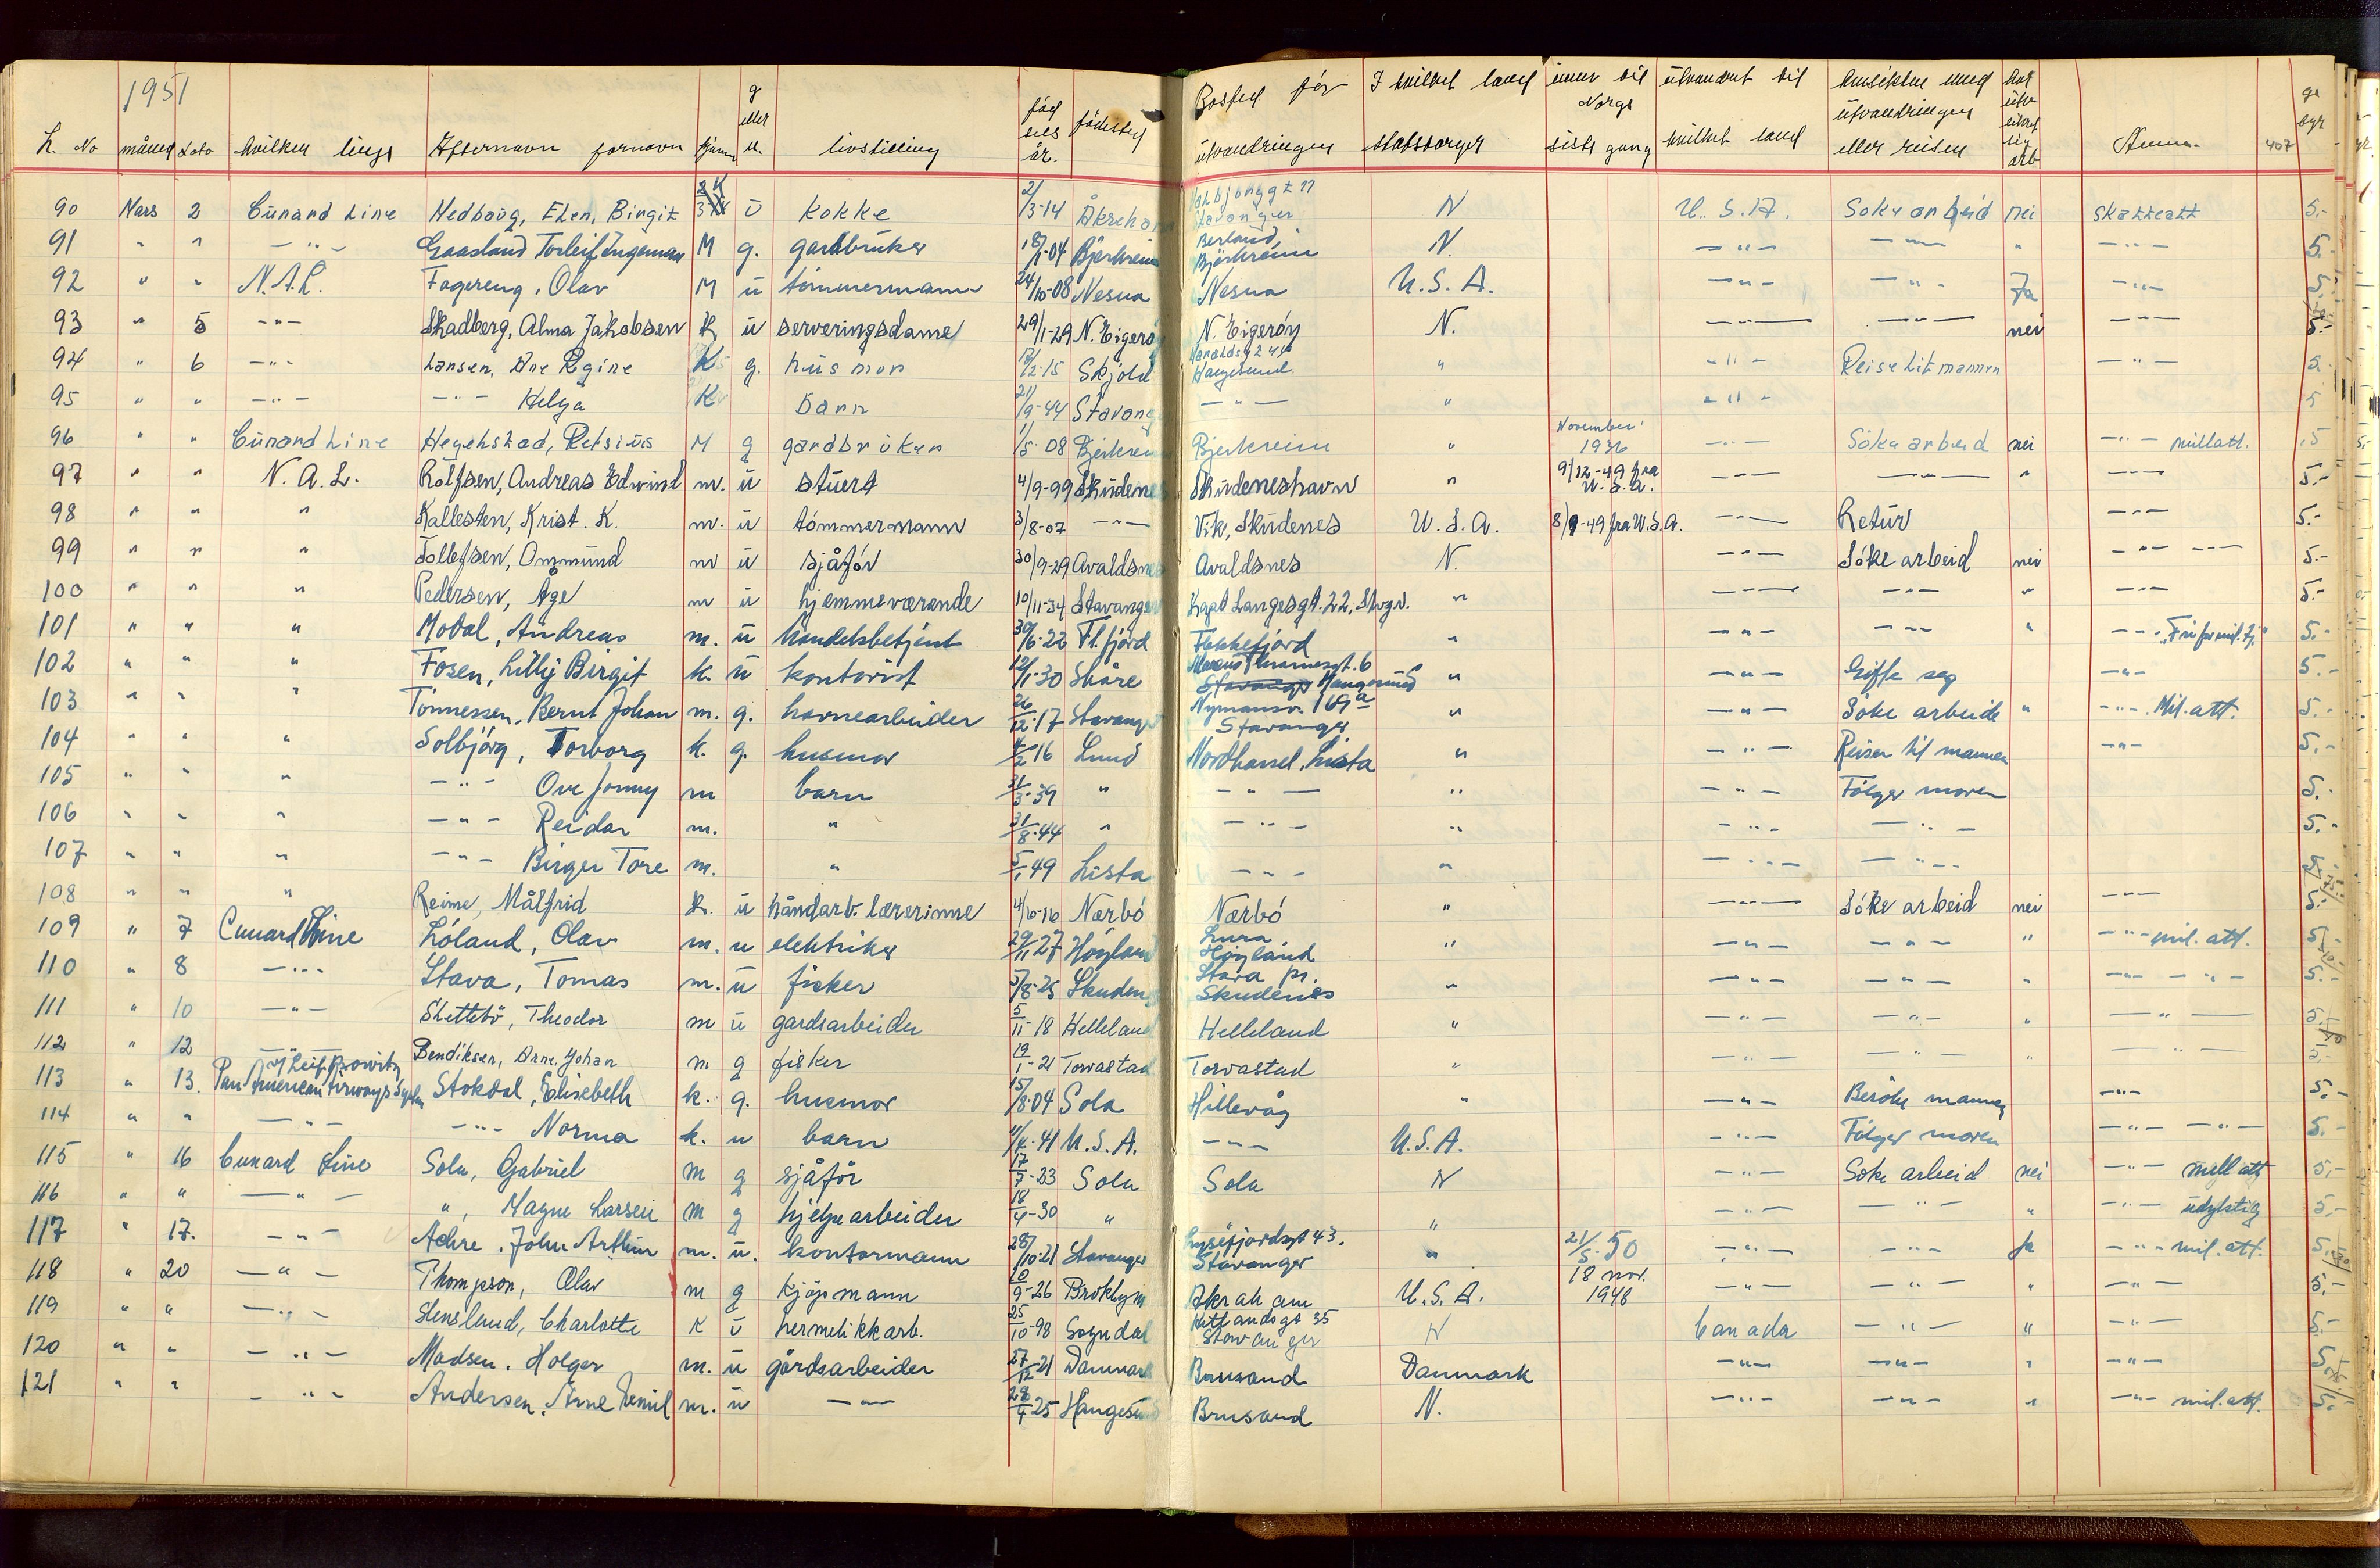 1951
L. No måned Dato hvilken linje Efternavn fornavn kjønn g eller u. livstilling fød sels år. fødested Bosted før utvandringen I hvilket land statsborger innv til Norge siste gang utvandret til hvilket land Hensikten med utvandringen eller reisen Anm. 407 ge byr
90 Mars 2 Cunard Line Nedbøvg, Elen, Birgit K u kokke 2/3-14 Åkreham Stavanger N U.S.A. Søke arbeid nei skatteatt 5.-
91 " " -"- Gaasland Torleif Ingeman M g. gardbruker 18/1-04 Bjerkreim Berland, Bjerkreim N. -"- -"- " -"- 5.-
92 " " N.A.L. Fagereng, Olav M u tømmermann 24/10-08 Nesna Nesna U.S.A. -"- -"- Ja -"- 5.-
93 " 5 -"- Skadberg, Alma Jakobsen K u serveringsdame 29/1-29 N. Eigerøy N. Eigerøy N. -"- -"- nei -"- 5.-
94 " 6 -"- Larsen, Ane Regine K g. husmor 12/2-15 Skjold Haraldsg 244 Haugesund " -"- Reise til mannen -"- 5.-
95 " " -"- -"- Helga K barn 21/9-44 Stavang -"- " -"- 5
96 " " Cunard Line Hegehstad, Retsius M g gardbruker 1/5-08 Bjerkreim Bjerkreim " November 1936 -"- Søke arbeid nei -"- millatt. 5
97 " " N.A.L. Rolfsen, Andreas Edwind m. u stuert 4/9-99 Skudenes Skudeneshavn " 9/12-49 fra U.S.A. -"- -"- " -"- 5.-
98 " " " Kallesten, Krist. K. m. u tømmermann 3/8-07 -"- Vik, Skudenes U.S.A. 8/9-49 fra U.S.A. -"- Retur -"- 5.-
99 " " " Tollefsen, Ommund m u sjåfør 30/9-29 Avaldsnes Avaldsnes N. -"- Søke arbeid nei -"- -"- 5.-
100 " " " Pedersen, Åge m u hjemmeværende 10/11-34 Stavanger Kapt Langesgt. 22, Stvgr. " -"- -"- " -"- 5.-
101 " " " Modal, Andreas m. u handelsbetjent 30/6-22 Fl.fjord Flekkefjord " -"- -"- " -"- "Fri for mil. tj." 5.-
102 " " " Fosen, Lilly Birgit k. u kontorist 12/1-30 Skåre Marcus Thranesgt. 6 Stavanger Haugesund " -"- Gifte seg -"- 5.-
103 " " " Tønnessen, Bernt Johan m. g. havnearbeider 26/12-17 Stavanger Nymansv. 169a Stavanger " -"- Søke arbeide " -"- Mil. att. 5.-
104 " " " Solbjørg, Torborg k. g. husmor 4/2-16 Lund Nordhassel, Lista " -"- Reiser til mannen -"- 5.-
105 " " " -"- Ove Jonny m barn 31/3-39 " -"- " -"- Følger moren 5.-
106 " " " -"- Reidar m. " 31/8-44 " -"- " -"- -"- 5.-
107 " " " -"- Birger Tore m. " 5/1-49 Lista -"- " -"- -"- 5.-
108 " " " Reime, Målfrid k. u håndarb. lærerinne 4/6-16 Nærbø Nærbø " -"- Søke arbeid nei -"- 5.-
109 " 7 Cunard Line Løland, Olav m. u elektriker 29/11-27 Høyland Lura Høyland " -"- -"- " -"- mil. att. 5.-
110 " 8 -"- Stava, Tomas m. u fisker 5/8-25 Skudenes Stava pr. Skudenes " -"- -"- " -"- -"- 5.-
111 " 10 -"- Skettebø, Theodor m u gardsarbeider 5/11-18 Helleland Helleland " -"- -"- " -"- 5.-
112 " 12 -"- Bendiksen, Arne, Johan m g fisker 19/1-21 Torvastad Torvastad " -"- -"- " -"- 5.-
113 " 13. Pan American Airways System Stokdal, Elisebeth k. g. husmor 15/8-04 Sola Hillevåg " -"- Besøke mannen -"- 5.-
114 " " -"- -"- Norma k. u barn 11/4-41 U.S.A. -"- U.S.A. -"- Følger moren -"- -"- 5.-
115 " 16 Cunard Line Sola, Gabriel m g sjåfør 17/7-23 Sola Sola N -"- Søke arbeid nei -"- mill att 5.-
116 " " -"- ", Magne Larsen m g hjelpearbeider 18/4-30 " " -"- -"- " -"- udyktig 5.-
117 " 17. -"- Achre, John Arthur m. u. kontormann 28/10-21 Stavanger Lysefjordgt 43. Stavanger " 21/5-50 -"- -"- Ja -"- mil. att. 5.-
118 " 20 -"- Thompson, Olav m g kjøpmann 10/9-26 Broklyn Akraham U.S.A. 18 nov. 1948 -"- -"- " -"- 5.-
119 " " -"- Stensland, Charlotte K u hermetikkarb. 25/10-98 Sogndal Hetlandsgt 35 Stavanger N Canada -"- " -"- 5.-
120 " " -"- Madsen, Holger m. u gårdsarbeider 27/12-21 Danmark Brusand Danmark -"- -"- " -"- 5.-
121 " " -"- Andersen, Arne Emil m. u -"- 28/4-25 Haugesund Brusand N. -"- -"- " -"- mil. att. 5.-